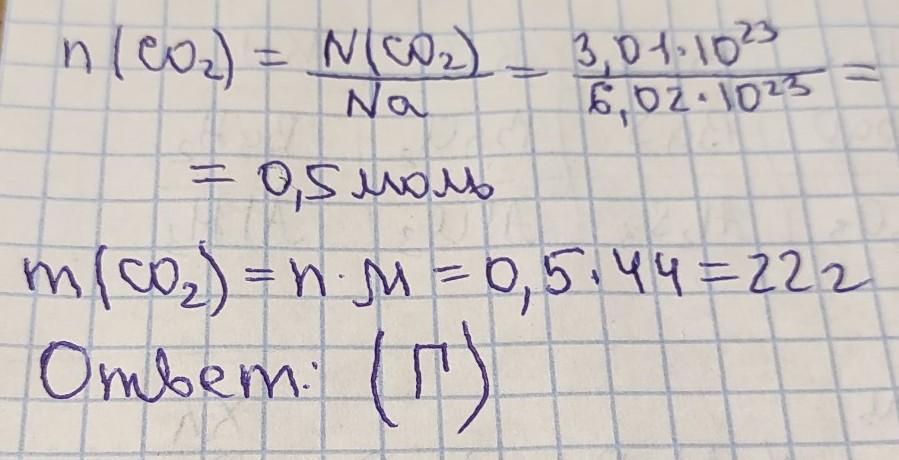 n(CO₂) = N(CO₂)/Na = 3,01·10²³/6,02·10²³ =
= 0,5 моль
m(CO₂) = n·M = 0,5·44 = 22г
Ответ: (П)